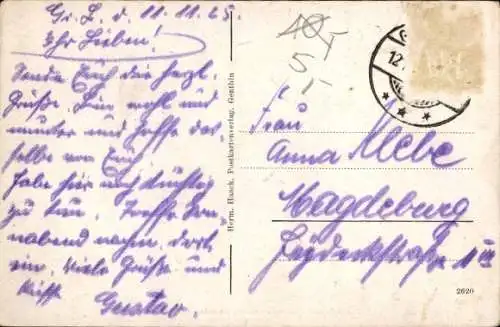 Gr. L. d. 11.11.25.
Ihr Lieben!
Sende Euch die herzl.
Grüße. Bin wohl und
munter und hoffe das-
selbe von Euch.
Habe hier noch tüchtig
zu tun. Treffe Son-
nabend nachm. dort
ein. Viele Grüße und
Küsse
Gustav.
Herm. Haack, Postkartenverlag, Genthin
5,-
12.
Frau
Anna Klebe
Magdeburg
2620